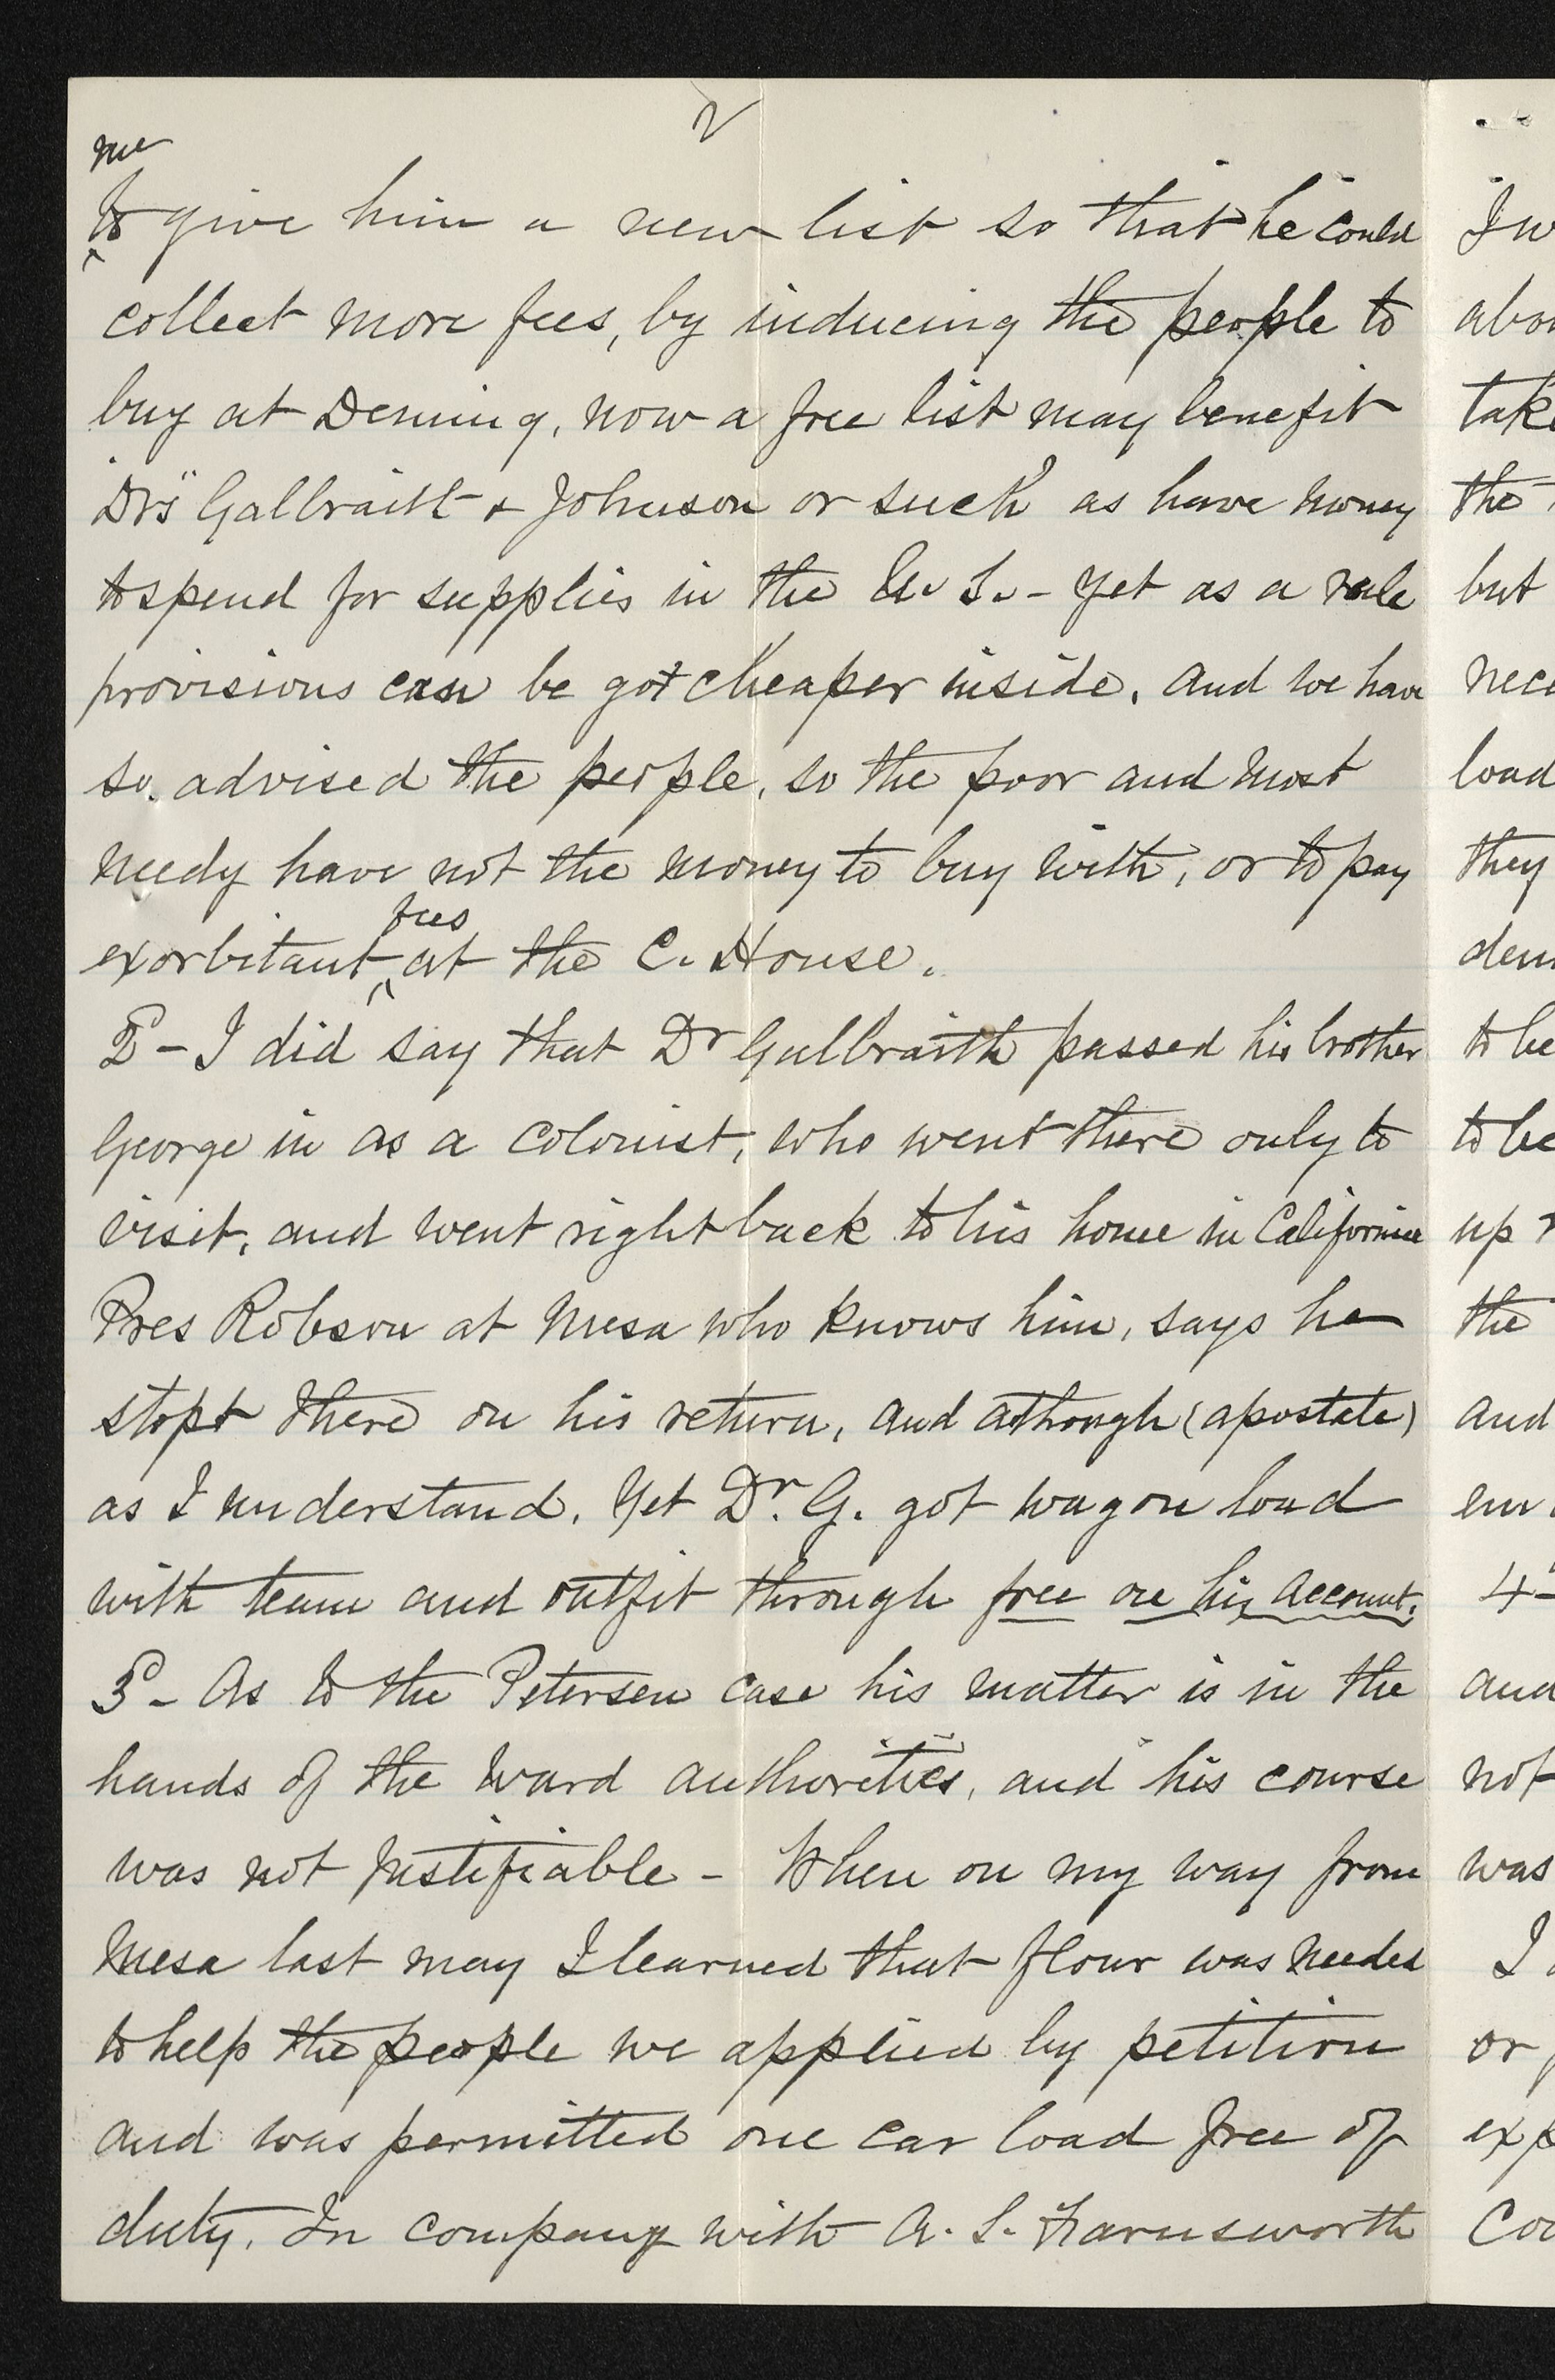 2
me
to give him a new list so that he could
collect more fees, by inducing the people to
buy at Deming, now a free list may benefit
Drs Galbraith & Johnson or such as have money
to spend for supplies in the U. S. - yet as a rule
provisions can be got cheaper inside. and we have
so advised the people, so the poor and most
needy have not the money to buy with, or to pay
fees
exorbitant ^ at the C. House.
2 - I did say that Dr Galbraith passed his brother
George in as a colonist, who went there only to
visit, and went right back to his home in California
Pres Robson at Mesa who knows him, says he
stopt there on his return, and athough (apostate)
as I understand. Yet Dr. G. got wagon load
with team and outfit through free on his account.
3 - As to the Petersen case his matter is in the
hands of the Ward authorities, and his course
was not justifiable - When on my way from
Mesa last may I learned that flour was needed
to help the people we applied by petition
and was permitted one car load free of
duty. In company with A. S. Farnsworth
I w
abo
tak
the
but
nece
load
they
dem
to be
to be
up
the
and
en
4
and
not
was
I
or
exp
Co